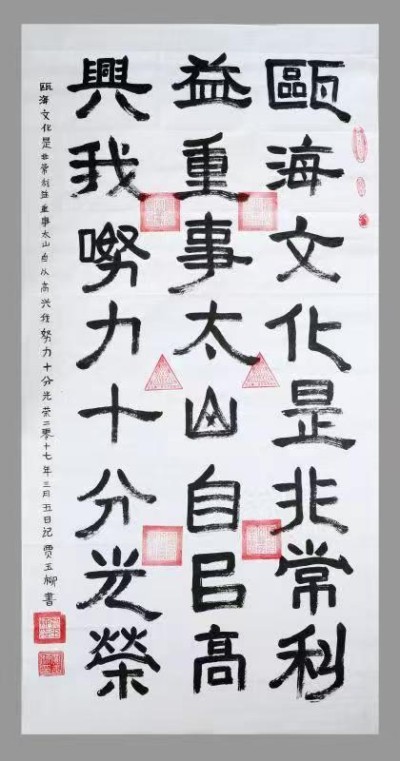 甌海文化是非常利
益重事太山自㠯高
興我力十分光榮
瓯海文化是非常利益重事太山自以高兴我努力十分光荣二零十七年三月五日记 贾玉卿书